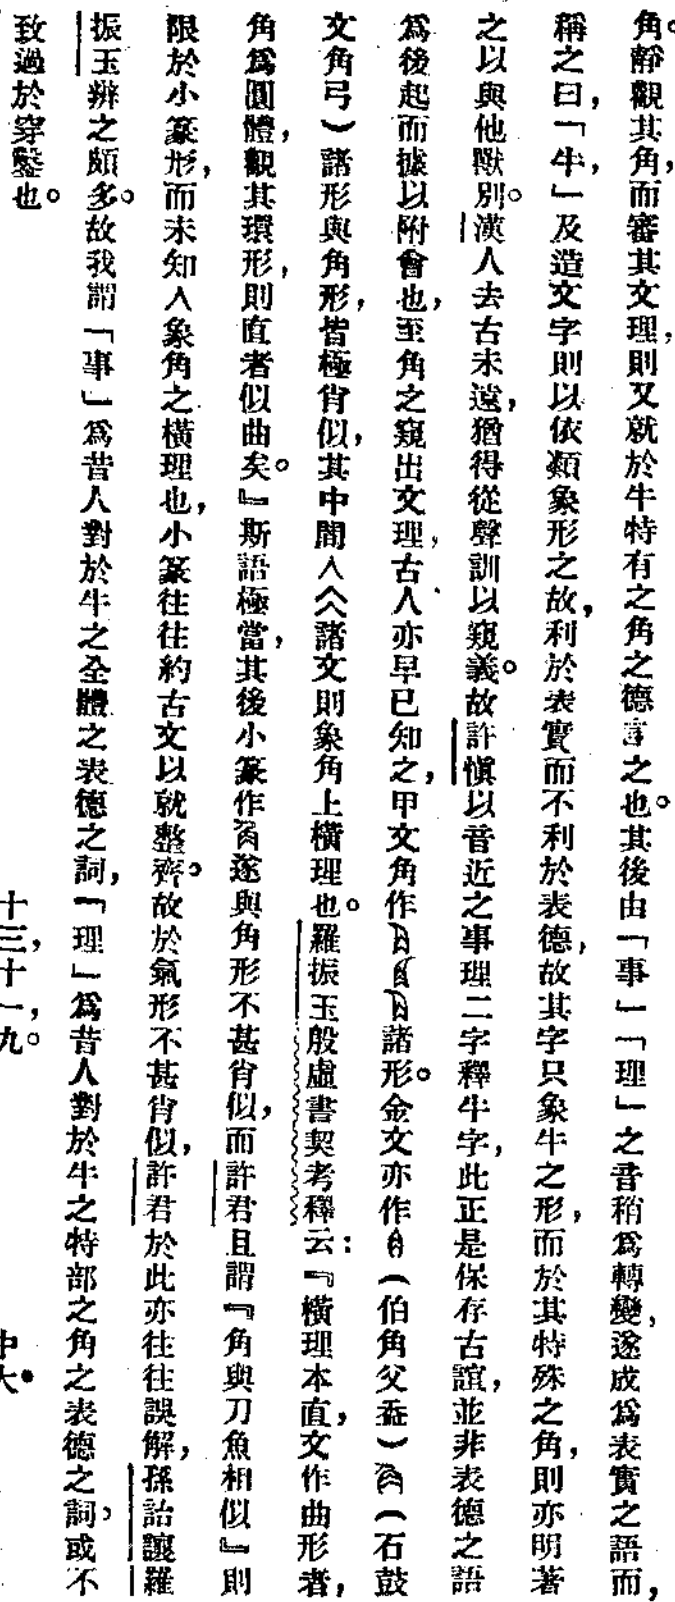 角。靜觀其角，而審其文理，則又就於牛特有之角之德言之也。其後由「事」「理」之音稍爲轉變，遂成爲表實之語而，
稱之曰，「牛，」及造文字則以依類象形之故，利於表實而不利於表德，故其字只象牛之形，而於其特殊之角，則亦明著
之以與他獸別。漢人去古未遠，猶得從聲訓以窺義。故許慎以音近之事理二字釋牛字，此正是保存古誼，並非表德之語
爲後起而據以附會也，至角之窺出文理，古人亦早已知之，甲文角作諸形。金文亦作（伯角父盉）（石鼓
文角弓）諸形與角形，皆極肖似，其中間人㐅諸文則象角上橫理也。羅振玉殷虛書契考釋云：『橫理本直，文作曲形者，
角爲圓體，觀其環形，則直者似曲矣。』斯語極當，其後小篆作遂與角形不甚肖似，而許君且謂『角與刀魚相似』則
限於小篆形，而未知人象角之橫理也，小篆往往約古文以就整齊。故於氣形不甚肖似，許君於此亦往往誤解，孫詒讓羅
振玉辨之頗多。故我謂「事」爲昔人對於牛之全體之表德之詞，「理」爲昔人對於牛之特部之角之表德之詞，或不
致過於穿鑿也。
十三，十一，九。
中大